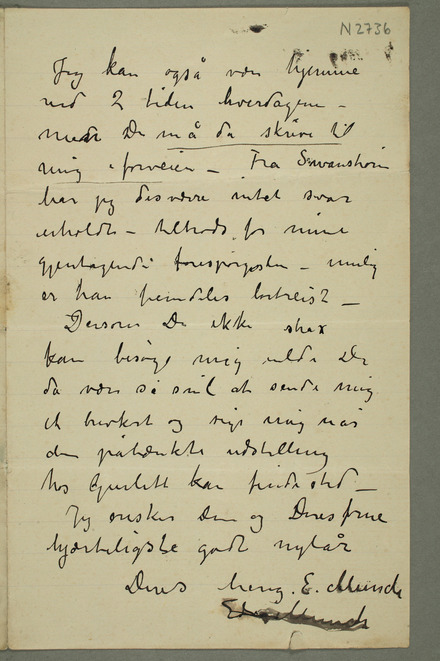 N2736
Jeg kan også være hjemme
ved 2 tiden hverdagene –
men De må da skrive til
mig i forveien – Fra Schwanstrøm
har jeg desværre intet svar
erholdt – tiltrods for mine
gjentagende forespørgsler – mulig
er han fremdeles bortreist –
Dersom De ikke strax
kan besøge mig vilde De
da være så snil at sende mig
et brevkort og sige mig når
den påtænkte udstilling
hos Gurlitt kan finde sted –
Jeg ønsker Dem og Deres frue
hjærteligste godt nytår
Deres heng. E. Munch